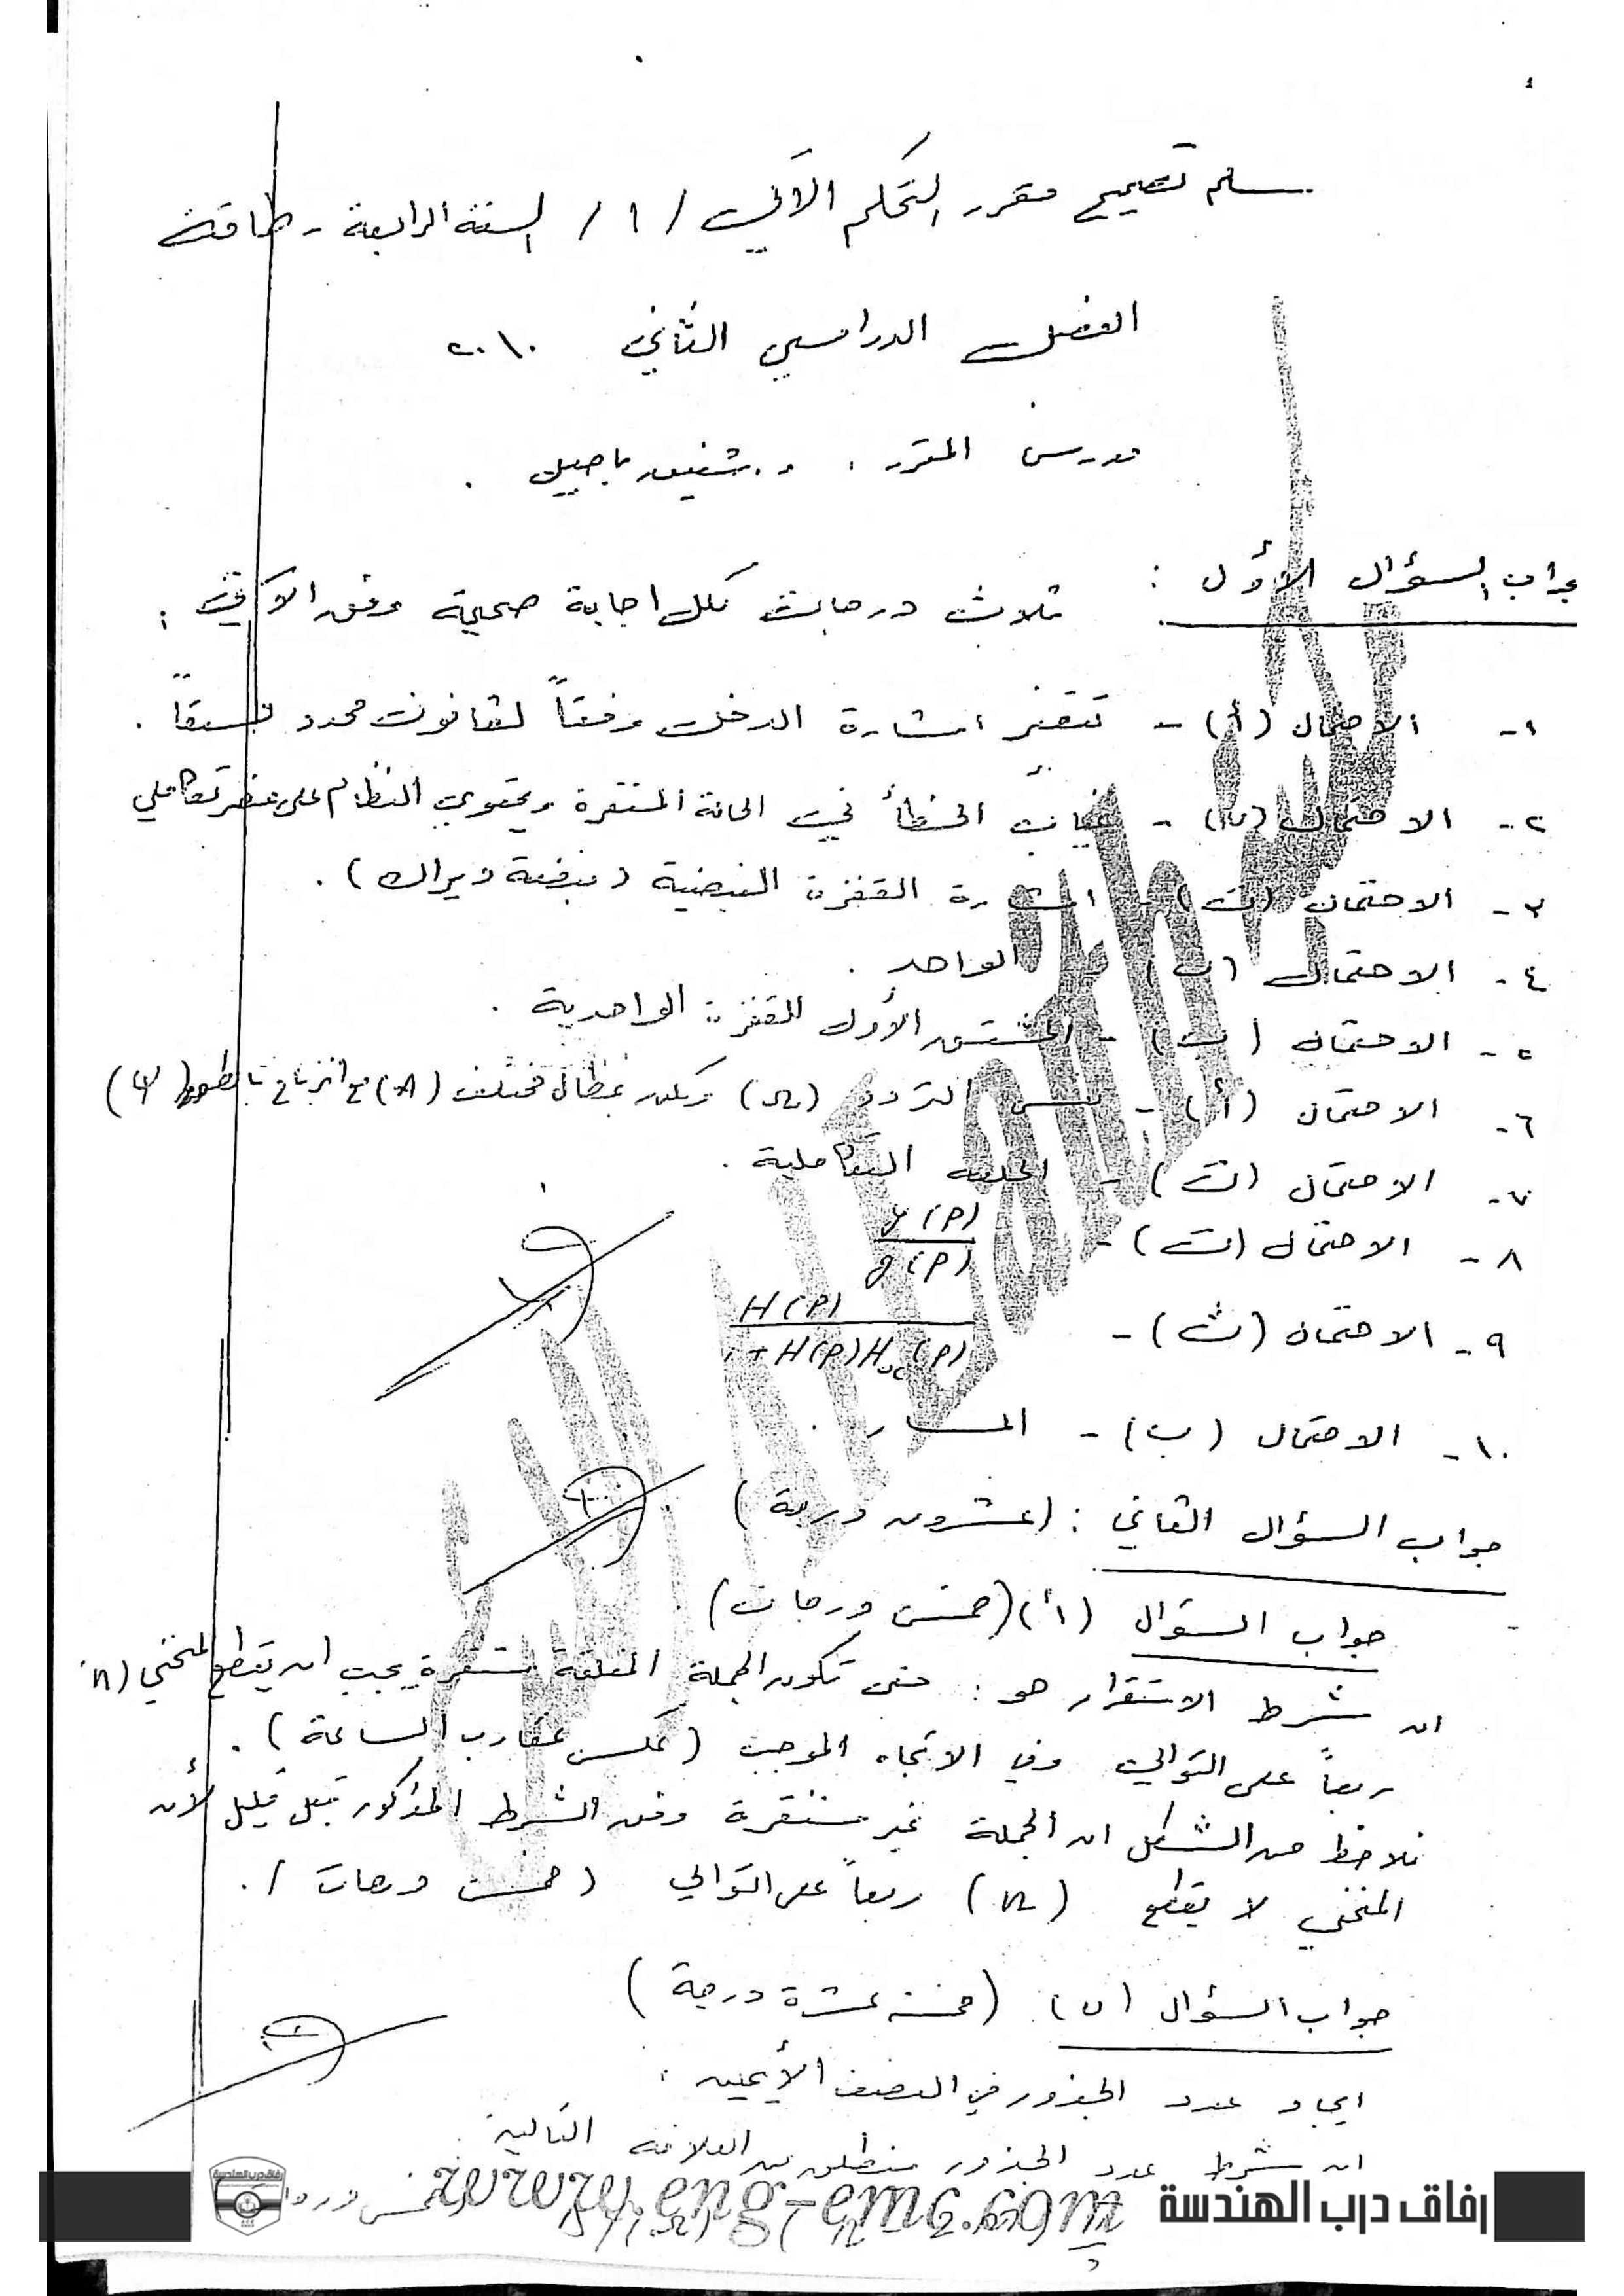 سلم تصحيح مقرر التحكم الآلي /١/ السنة الرابعة - طاقة
الفصل الدراسي الثاني ٢٠١٠
مدرس المقرر : د. شفيق باصيل .
جواب السؤال الأول : ثلاث درجات لكل اجابة صحيحة وفق الآتي :
١- الاحتمال (أ) - تتغير اشارة الدخل وفقاً لقانون محدد مسبقاً .
٢- الاحتمال (ب) - غياب الخطأ في الحالة المستقرة ويحتوي النظام على عنصر تكاملي
٣- الاحتمال (ت) - اشارة القفزة النبضية (نبضة ديراك) .
٤- الاحتمال (ب) - الواحد .
٥- الاحتمال (ت) - المشتق الأول للقفزة الواحدية .
٦- الاحتمال (أ) - نفس التردد (ω) ولكن بمطال مختلف (A) مع انزياح بالطور (φ)
٧- الاحتمال (ت) - الحلقة التكاملية .
٨- الاحتمال (ت) - y(P) / g(P)
٩- الاحتمال (ث) - H(P) / 1+H(P)H(P)
١٠- الاحتمال (ب) - المسار .
جواب السؤال الثاني : (عشرون درجة)
جواب السؤال (أ) (خمس درجات)
ان شرط الاستقرار هو : حتى تكون الجملة المغلقة مستقرة يجب ان يقطع المنحني (n)
ربعاً على التوالي وفي الاتجاه الموجب (عكس عقارب الساعة) .
نلاحظ من الشكل ان الجملة غير مستقرة وفق الشرط المذكور قبل قليل لأن
المنحني لا يقطع (n) ربعاً على التوالي (خمس درجات) .
جواب السؤال (ب) (خمسة عشرة درجة)
ايجاد عدد الجذور في النصف الأيمن :
ان شرط عدد الجذور ينطلق من العلاقة التالية :
www.eng-emc.com
رفاق درب الهندسة